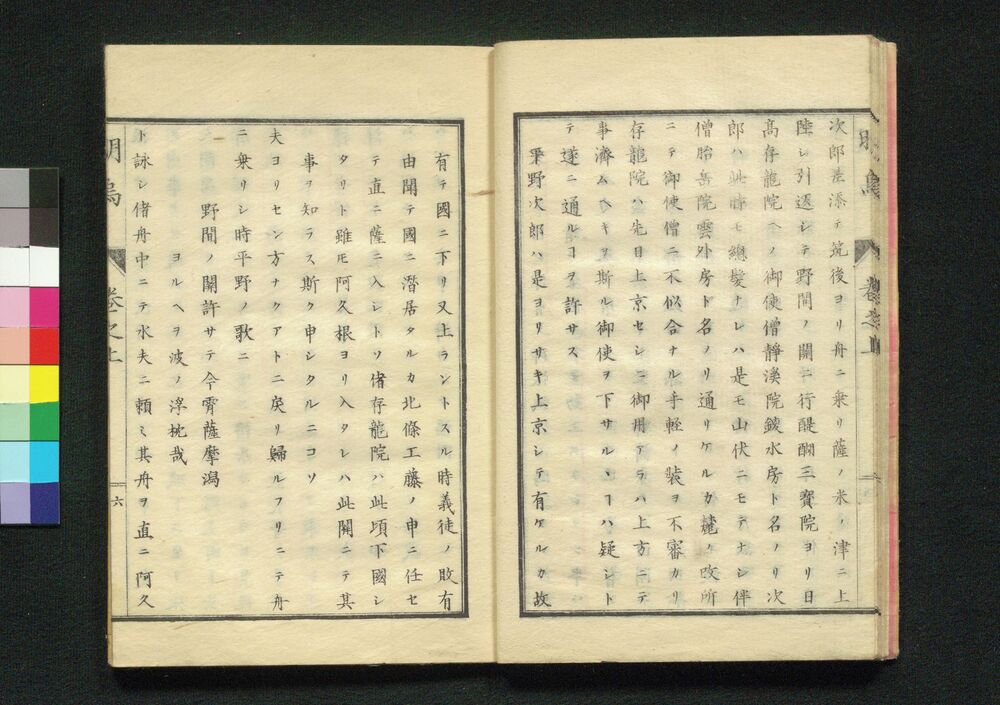 次郎差添テ筑後ヨリ舟ニ乗リ薩ノ米ノ津ニ上
陸シ引返シテ野間ノ關ニ行醍醐三寳院ヨリ日
髙存龍院ヘノ御使僧靜溪院錂水房ト名ノリ次
郎ハ此時モ總髪ナレハ是モ山伏ニモテナシ伴
僧胎岳院雲外房ト名ノリ通リケルカ蕵ノ改所
ニテ御使僧ニ不似合ナル手軽ノ装ヲ不審カリ
存龍院ハ先日上京セシニ御用アラハ上方ニテ
事濟ムヘキヲ斯ル御使ヲ下サルヽヿハ疑シト
テ遂ニ通ルヿヲ許サス
粟野次郎ハ是ヨリサキ上京シテ有ケルカ故
有テ國ニ下リ又上ラントスル時義徒ノ敗有
由聞テ國ニ潛居タルカ北條工藤ノ申ニ任セ
テ直ニ薩ニ入シトソ偖存龍院ハ此頃下國シ
タリト雖モ阿久根ヨリ入タレハ此關ニテ其
事ヲ知ラス斯ク申シタルニコソ
夫ヨリセン方ナクアトニ戻リ歸ルフリニテ舟
ニ乗リシ時平野ノ歌ニ
野間ノ關許サテ今霄薩摩潟
ヨルヘヲ波ノ浮枕哉
ト詠シ偖舟中ニテ水夫ニ頼ミ其舟ヲ直ニ阿久
明烏
卷之上
六